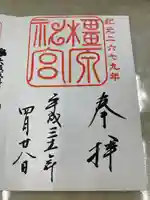 紀元二六七九年
奉拝
橿原神宮
平成三十一年
四月廿八日